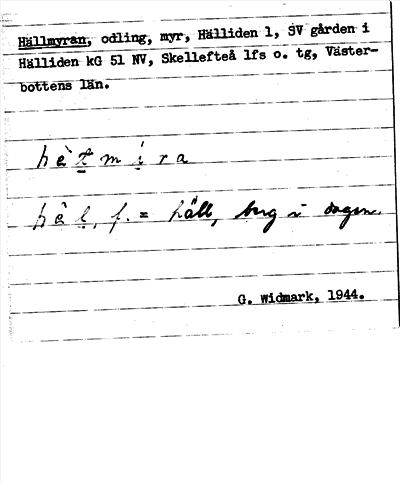 Hällmyran, odling, myr, Hälliden 1, SV gården i
Hälliden kG 51 NV, Skellefteå lfs o. tg, Väster-
bottens län.
f. = häll, berg i dagen.
G. Widmark, 1944.